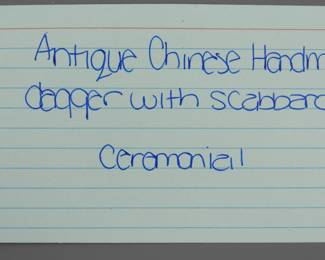 Antique Chinese Handm
dagger with scabbard
Ceremonial